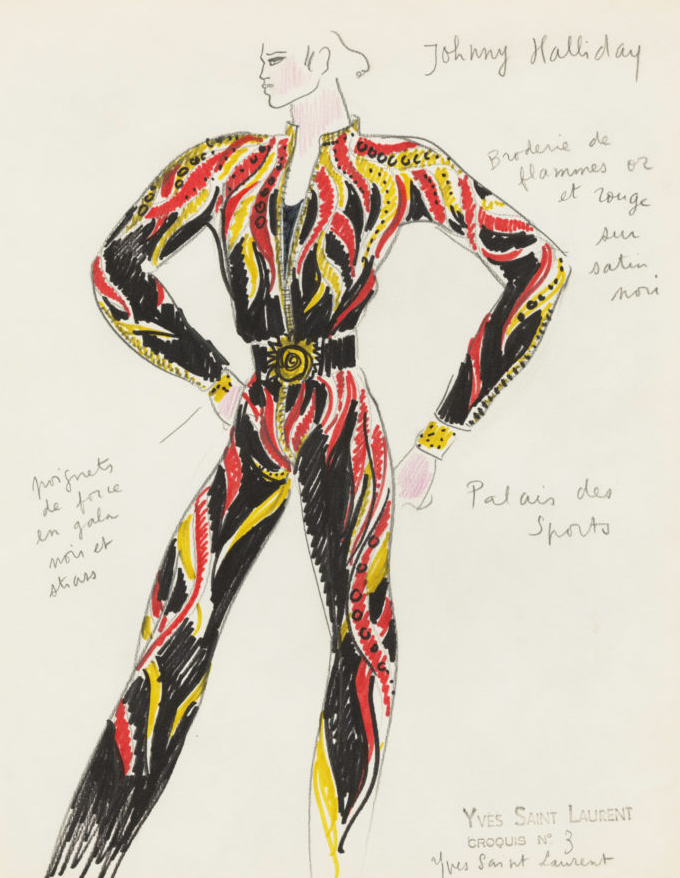 Johnny Halliday
Broderie de
flammes or
et rouge
sur
satin
noir
poignets
de force
en galon
noir et
strass
Palais des
Sports
YVES SAINT LAURENT
CROQUIS Nº 3
Yves Saint Laurent